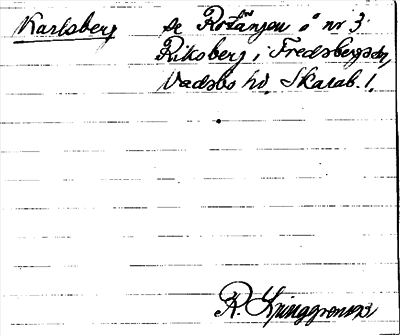 Karlsberg se Rotänjen å nr 3
Riksberg i Fredsbergs sn,
Vadsbo hd. Skarab. l.
R. Ljunggren